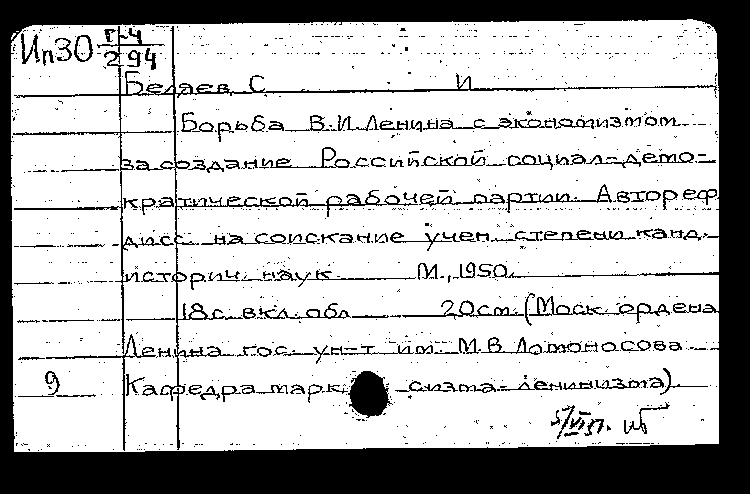 Ип30 Г-4
2 94
Беляев С И
Борьба В.И. Ленина с экономизмом
за создание Российской социал=демо-
кратической рабочей партии. Автореф
дисс. на соискание учен. степени канд.
историч. наук М., 1950.
18с. вкл. обл 20см. (Моск. ордена
Ленина гос. ун-т им. М.В. Ломоносова
9 Кафедра марк сизма-ленинизма)